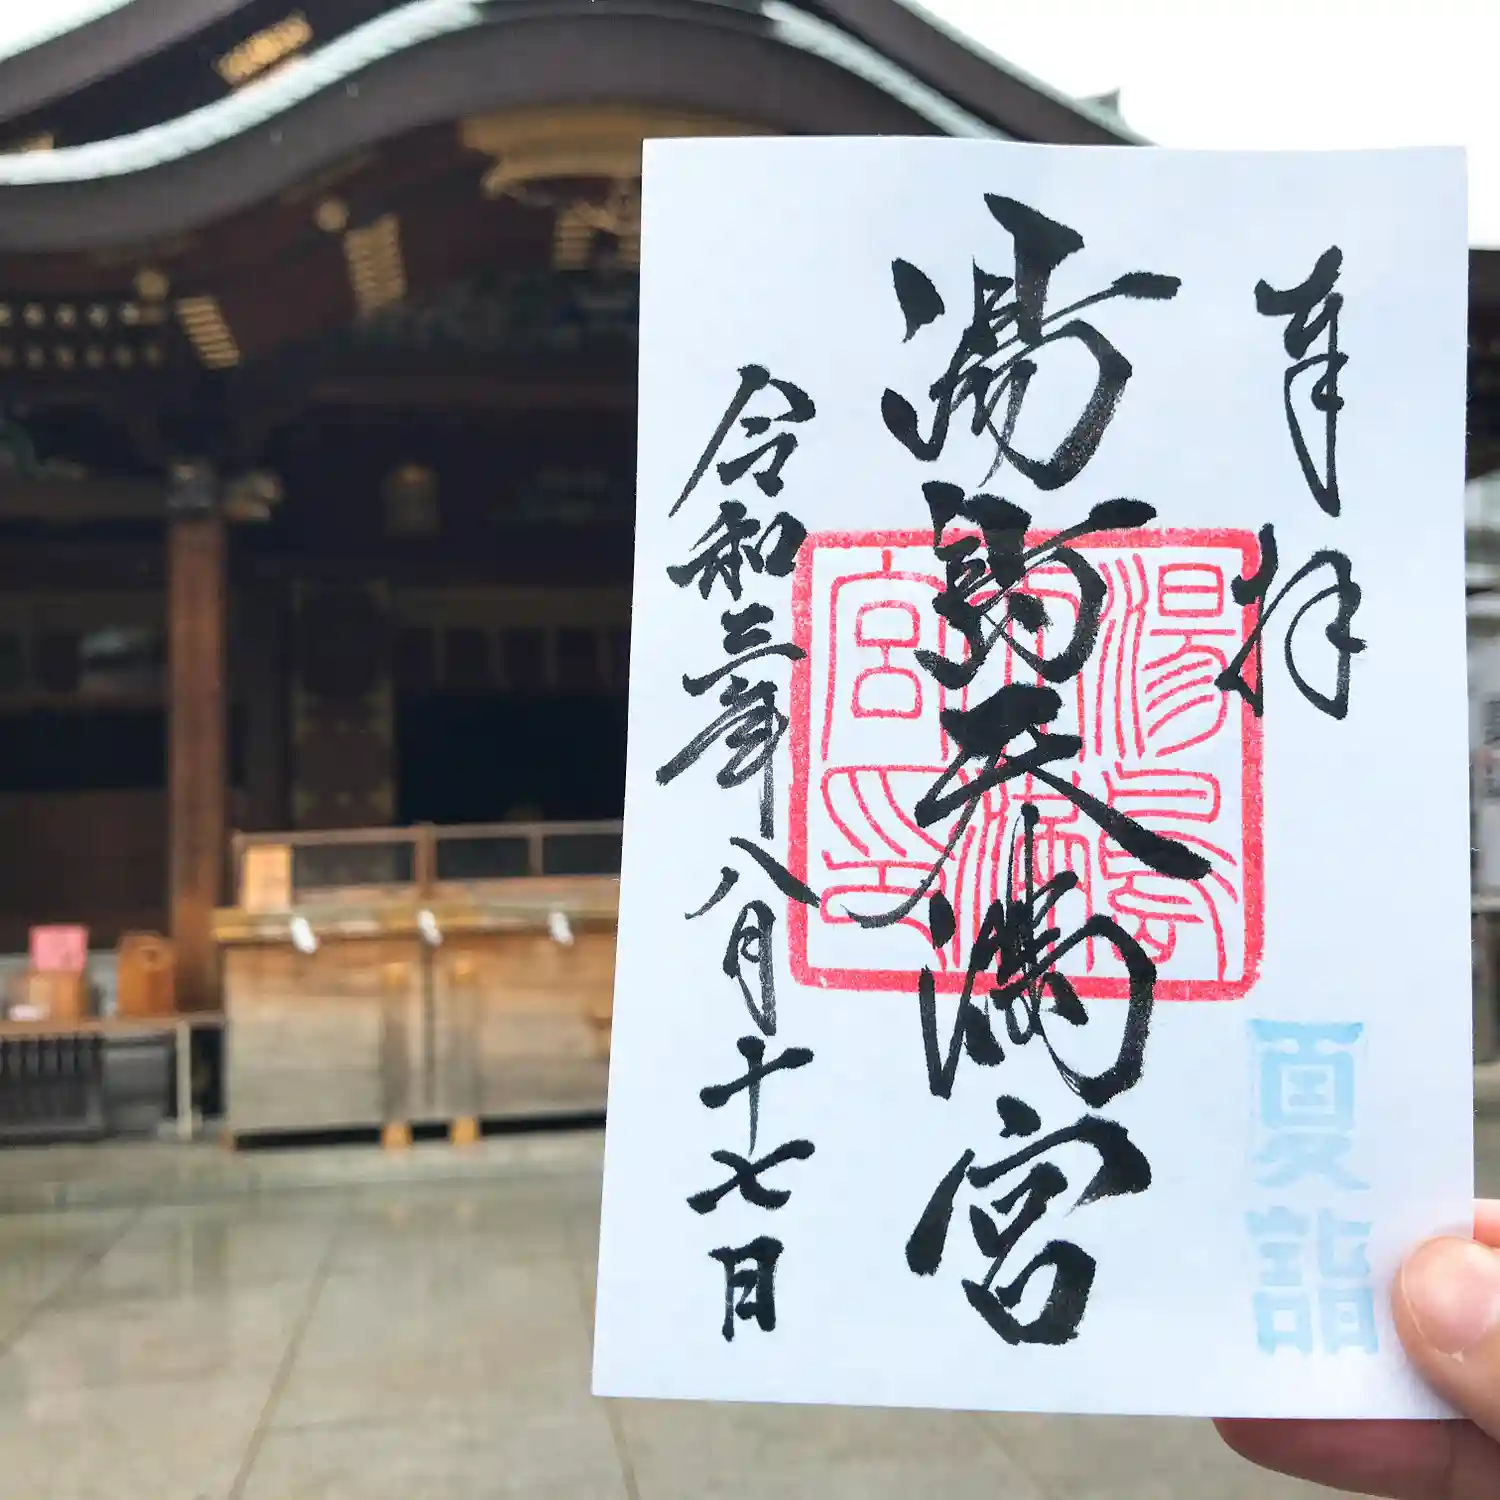 奉拝
湯島天満宮
令和三年八月十七日
湯島天満宮印
夏詣